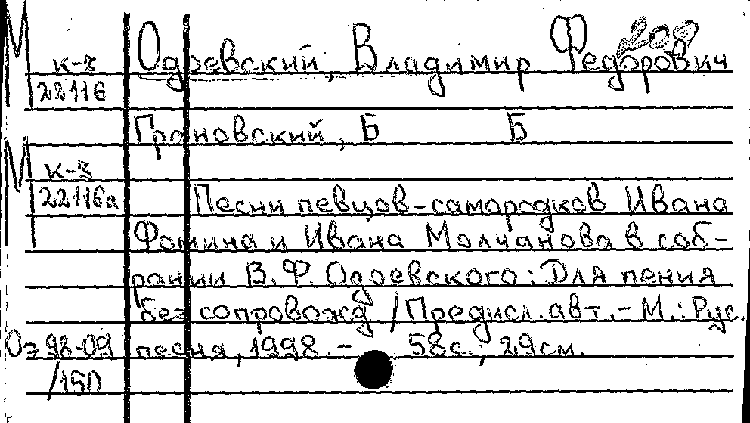 М к-з Одоевский, Владимир Федорович
22116
Грановский, Б Б
М к-з
22116а Песни певцов-самородков Ивана
Фомина и Ивана Молчанова в соб-
рании В. Ф. Одоевского: Для пения
без сопровожд / Предисл. авт. - М.: Рус.
Оз 98-09 песня, 1998. - 58с., 29см.
/150